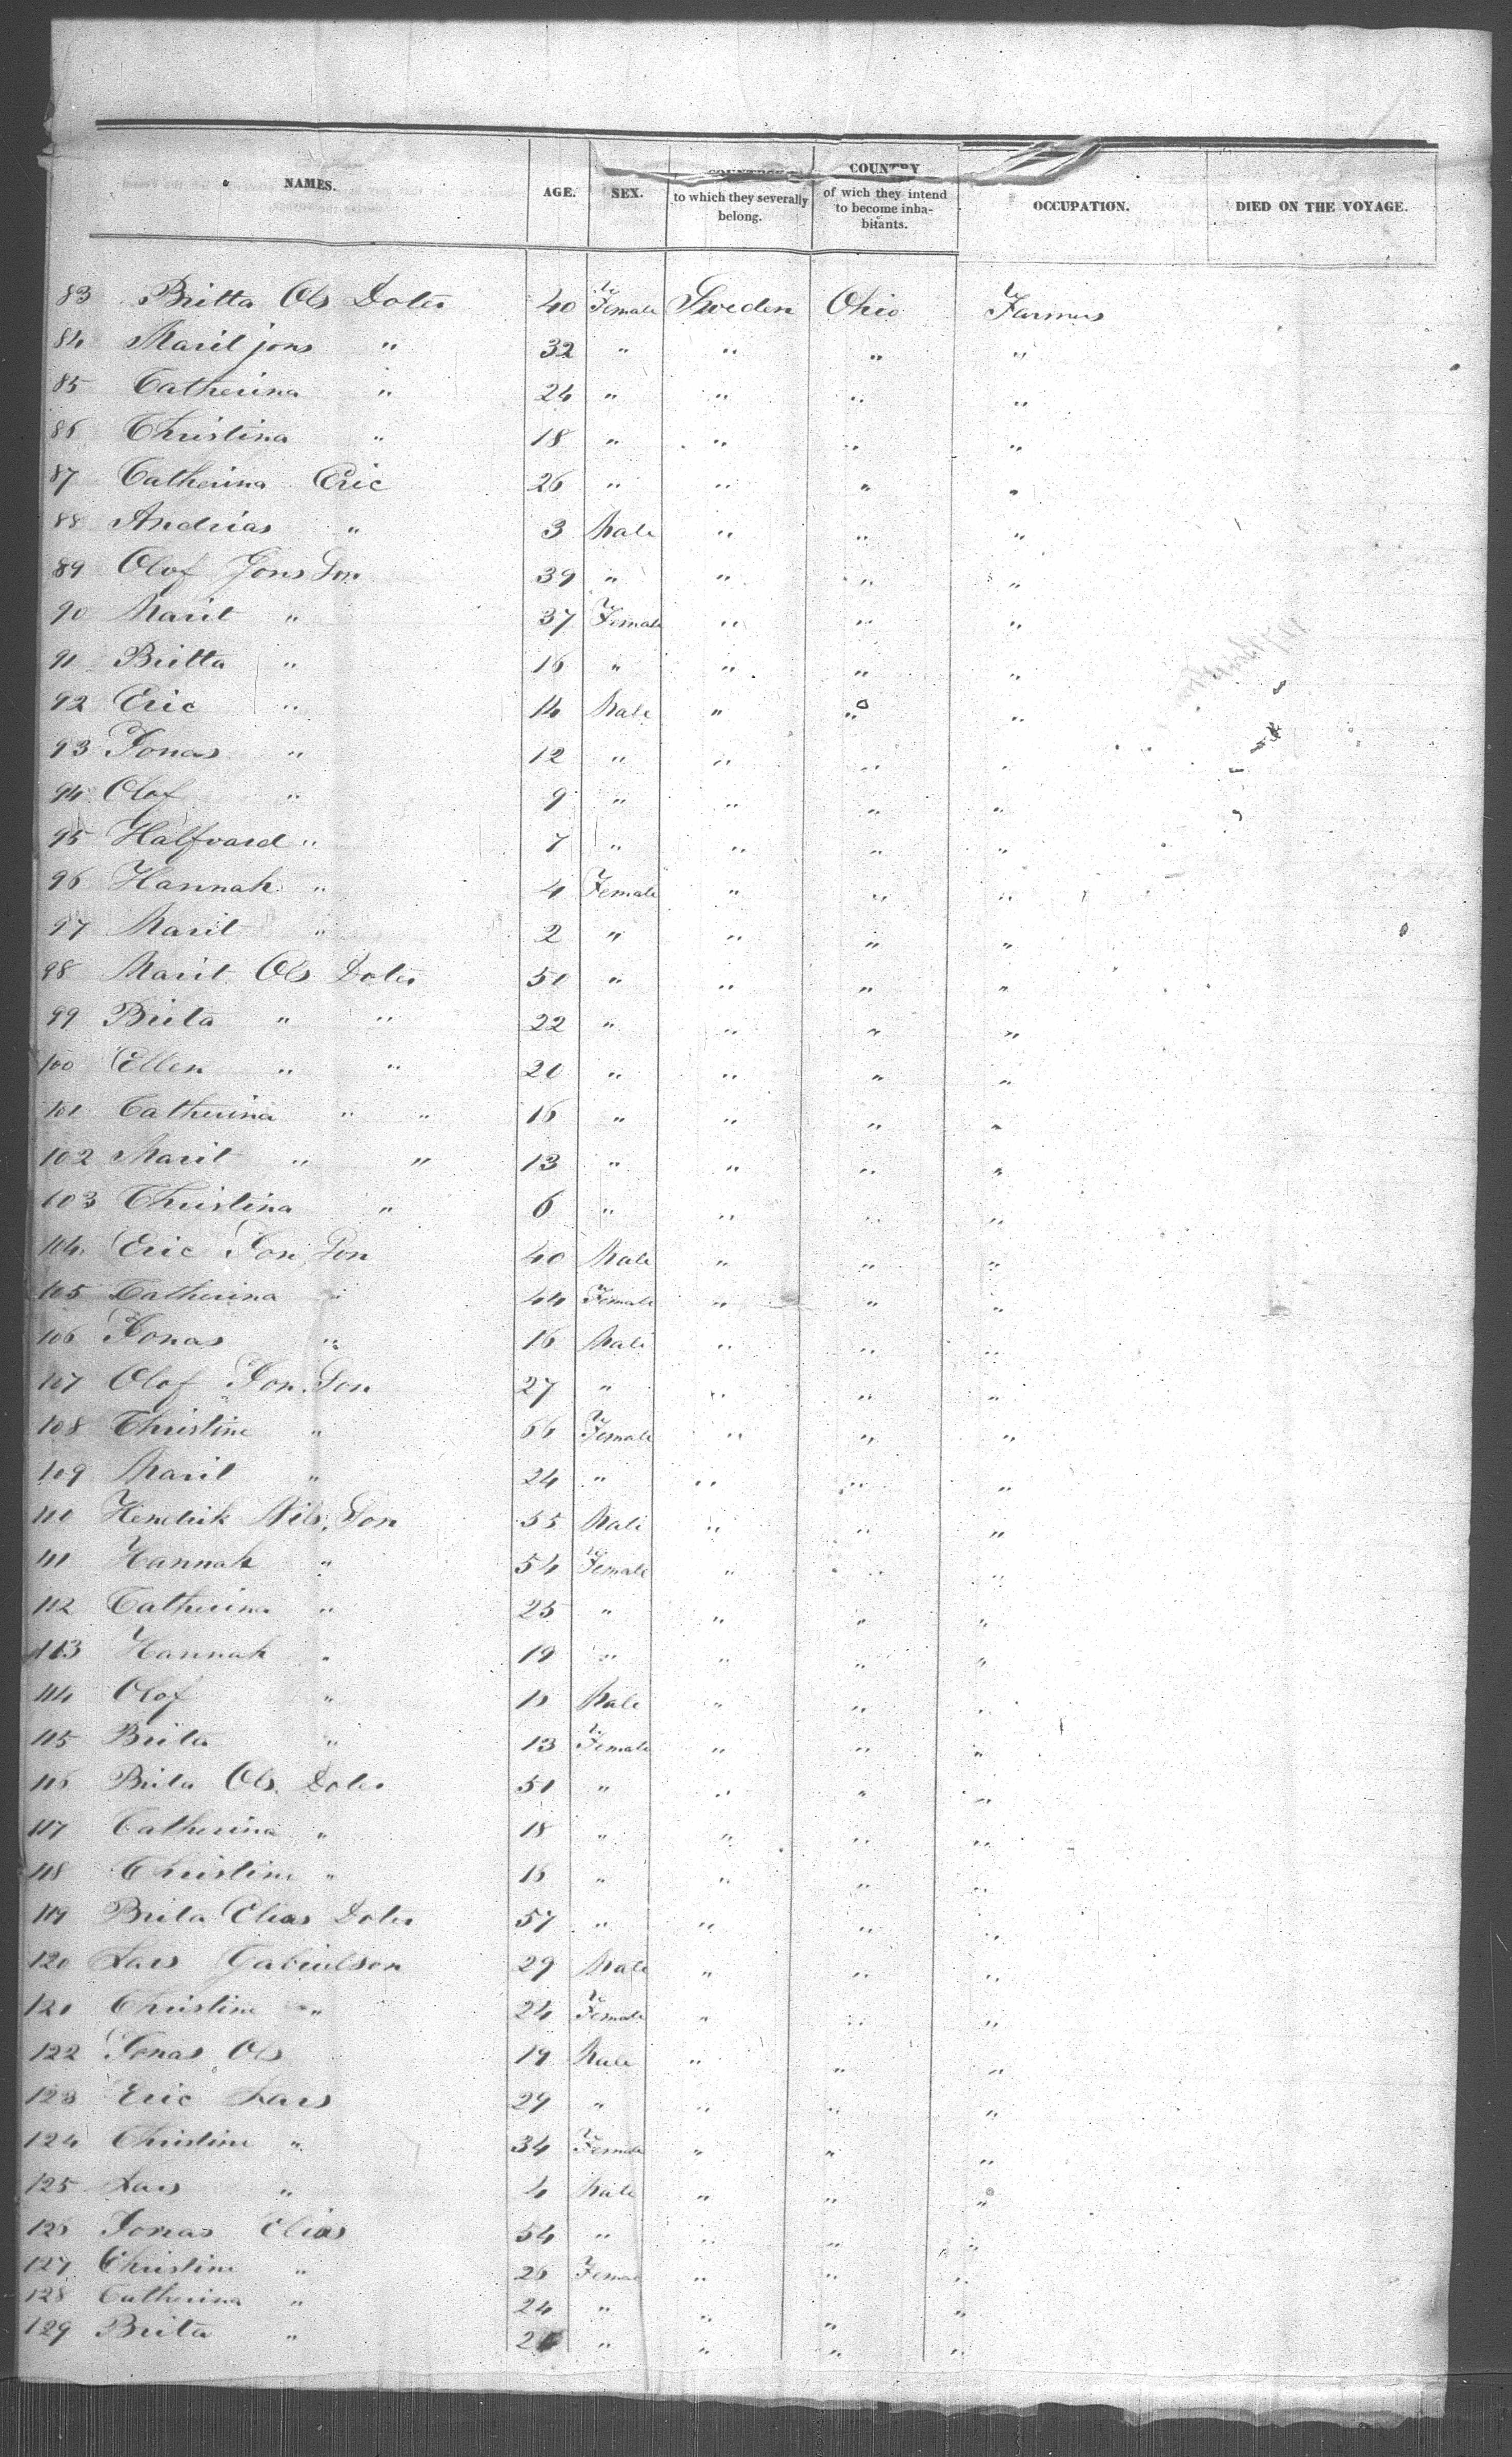 NAMES. AGE. SEX. to which they severally belong. COUNTRY of wich they intend to become inhabitants. OCCUPATION. DIED ON THE VOYAGE.
83 Britta Ols Doter 40 Female Sweden Ohio Farmers
84 Marit jons " 32 " " " "
85 Catherina " 24 " " " "
86 Christina " 18 " " " "
87 Catherina Eric 26 " " " "
88 Andrias " 3 Male " " "
89 Olof Jons Son 39 " " " "
90 Marit " 37 Female " " "
91 Britta " 16 " " " "
92 Eric " 14 Male " " "
93 Jonas " 12 " " " "
94 Olof " 9 " " " "
95 Halfvard " 7 " " " "
96 Hannah " 4 Female " " "
97 Marit " 2 " " " "
98 Marit Ols Doter 50 " " " "
99 Brita " " 22 " " " "
100 Ellen " " 20 " " " "
101 Catherina " " 16 " " " "
102 Marit " " 13 " " " "
103 Christina " 6 " " " "
104 Eric Jon Son 40 Male " " "
105 Catherina " 44 Female " " "
106 Jonas " 16 Male " " "
107 Olof Jon Son 27 " " " "
108 Christine " 66 Female " " "
109 Marit " 24 " " " "
110 Hendrik Nils Son 55 Male " " "
111 Hannah " 54 Female " " "
112 Catherina " 25 " " " "
113 Hannah " 19 " " " "
114 Olof " Male " " "
115 Brita " 13 Female " " "
116 Brita Ols Doter 51 " " " "
117 Catherina " 18 " " " "
118 Christine " 16 " " " "
119 Brita Elias Doter 57 " " " "
120 Lars Gabrielson 29 Male " " "
121 Christine " 24 Female " " "
122 Jonas Ols 19 Male " " "
123 Eric Lars 29 " " " "
124 Christine " 34 Female " " "
125 Lars " 4 Male " " "
126 Jonas Elias 54 " " " "
127 Christine " 26 Female " " "
128 Catherina " 24 " " " "
129 Brita " " " " "